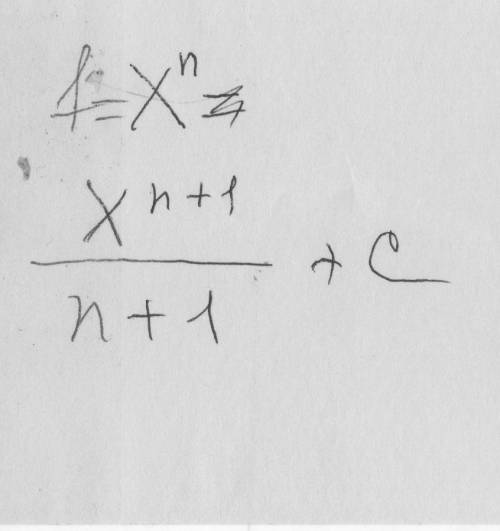 f = xⁿ =
xⁿ⁺¹
n + 1 + C